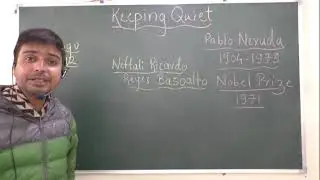 Keeping Quiet
Pablo Neruda
1904-1973
Neftali Ricardo
Reyes Basoalto
Nobel Prize
1971